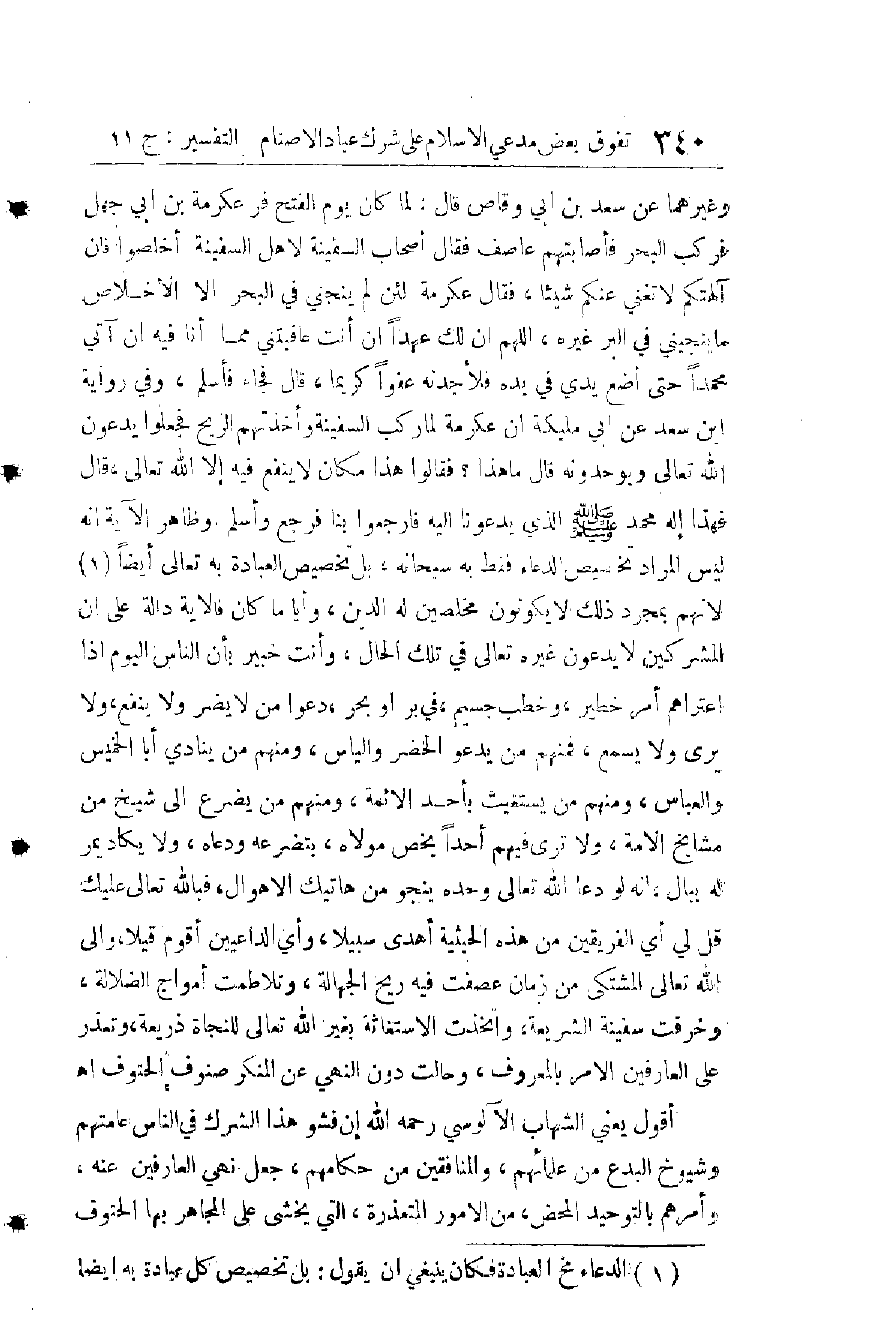 ٣٤٠ تفوق بعض مدعي الاسلام على شرك عباد الاصنام التفسير : ج ١١
وغيرهما عن سعد بن ابي وقاص قال : لما كان يوم الفتح فر عكرمة بن ابي جهل
فركب البحر فأصابتهم عاصف فقال أصحاب السفينة لاهل السفينة أخلصوا فان
آلهتكم لاتغني عنكم شيئا ، فقال عكرمة لئن لم ينجني في البحر الا الاخلاص
ماينجيني في البر غيره ، اللهم ان لك عهداً ان أنت عافيتني ممـا أنا فيه ان آتي
محمداً حتى أضع يدي في يده فلأجدنه عفواً كريما ، قال فجاء فأسلم ، وفي رواية
ابن سعد عن ابي مليكة ان عكرمة لما ركب السفينة وأخذتهم الريح فجعلوا يدعون
الله تعالى ويوحدونه قال ماهذا ؟ فقالوا هذا مكان لاينفع فيه إلا الله تعالى ،قال
فهذا إله محمد ﷺ الذي يدعونا اليه فارجعوا بنا فرجع وأسلم . وظاهر الآية انه
ليس المراد تخصيص الدعاء فقط به سبحانه ، بل تخصيص العبادة به تعالى أيضاً (١)
لانهم بمجرد ذلك لايكونون مخلصين له الدين ، وأيا ما كان فالاية دالة على ان
المشركين لايدعون غيره تعالى في تلك الحال ، وأنت خبير بأن الناس اليوم اذا
اعتراهم أمر خطير ،وخطب جسيم ،في بر او بحر ،دعوا من لايضر ولا ينفع،ولا
يرى ولا يسمع ، فمنهم من يدعو الخضر والياس ، ومنهم من ينادي أبا الخميس
والعباس ، ومنهم من يستغيث بأحـد الائمة ، ومنهم من يضرع الى شيخ من
مشايخ الامة ، ولا ترى فيهم أحداً يخص مولاه ، بتضرعه ودعاه ، ولا يكاد يمر
له ببال ،انه لو دعا الله تعالى وحده ينجو من هاتيك الاهوال، فبالله تعالى عليك
قل لي أي الفريقين من هذه الحيثية أهدى سبيلا ، وأي الداعيين أقوم قيلا،والى
الله تعالى المشتكى من زمان عصفت فيه ريح الجهالة ، وتلاطمت أمواج الضلالة ،
وخرقت سفينة الشريعة، واتخذت الاستغاثة بغير الله تعالى للنجاة ذريعة،وتعذر
على العارفين الامر بالمعروف ، وحالت دون النهي عن المنكر صنوف الحتوف اه
أقول يعني الشهاب الآلوسي رحمه الله إن فشو هذا الشرك في الناس عامتهم
وشيوخ البدع من علمائهم ، والمنافقين من حكامهم ، جعل نهي العارفين عنه ،
وأمرهم بالتوحيد المحض، من الامور المتعذرة ، التي يخشى على المجاهر بها الحتوف
(١) الدعاء مخ العبادة فكان ينبغي ان يقول : بل تخصيص كل عبادة به ايضا